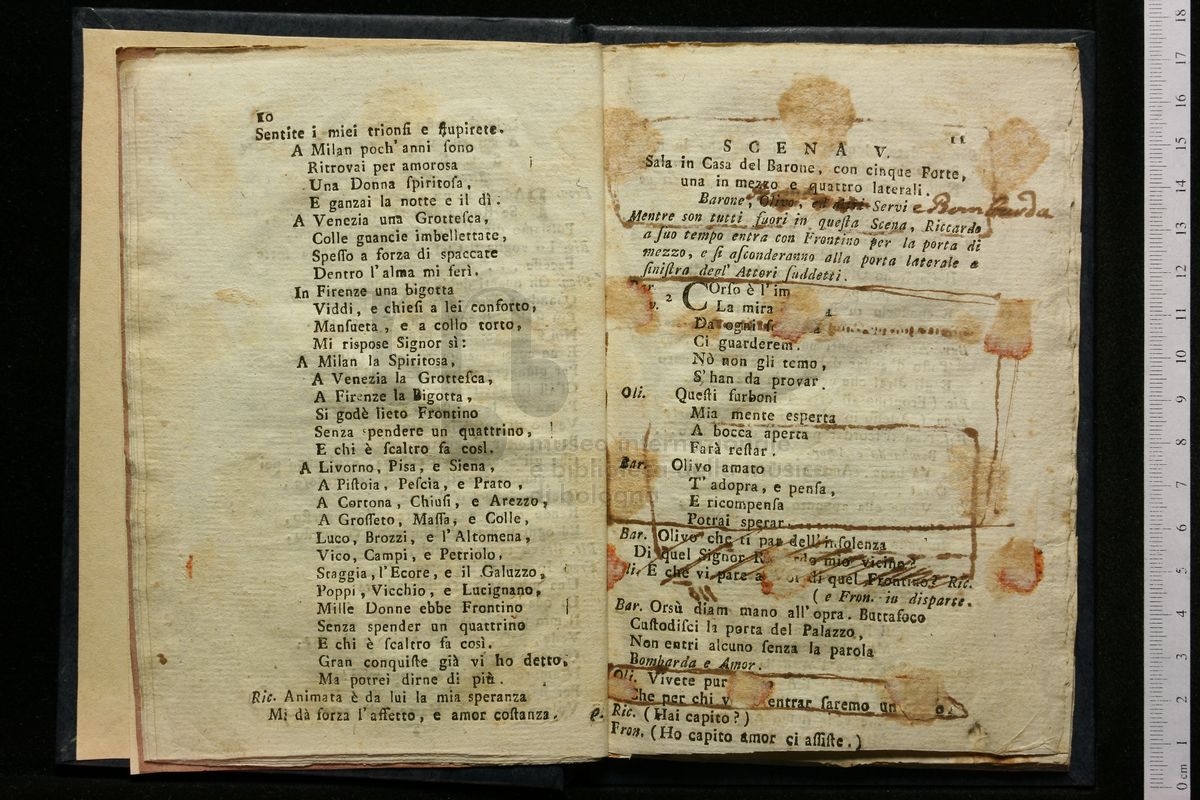 10
Sentite i miei trionfi e ſtupirete.
A Milan poch' anni ſono
Ritrovai per amoroſa
Una Donna ſpiritoſa,
E ganzai la notte e il dì:
A Venezia una Grotteſca,
Colle guancie imbellettate,
Speſſo a forza di spaccate
Dentro l'alma mi ferì.
In Firenze una bigotta
Viddi, e chieſi a lei conforto,
Manſueta, e a collo torto,
Mi riſpoſe Signor sì:
A Milan la Spiritoſa,
A Venezia la Grotteſca,
A Firenze la Bigotta,
Si godè lieto Frontino
Senza spendere un quattrino,
E chi è ſcaltro fa così.
A Livorno, Piſa, e Siena,
A Piſtoia, Peſcia, e Prato,
A Cortona, Chiuſi, e Arezzo,
A Groſſeto, Maſſa, e Colle,
Luco, Brozzi, e l'Altomena,
Vico, Campi, e Petriolo,
Staggia, l'Ecore, e il Galuzzo,
Poppi, Vicchio, e Lucignano,
Mille Donne ebbe Frontino
Senza spender un quattrino
E chi è ſcaltro fa così.
Gran conquiſte già vi ho detto,
Ma potrei dirne di più.
Ric. Animata è da lui la mia speranza
Mi dà forza l'affetto, e amor coſtanza.
11
SCENA V.
Sala in Caſa del Barone, con cinque Porte,
una in mezzo e quattro laterali.
Barone, Olivo, ed altri Servi e Bombarda
Mentre son tutti fuori in queſta Scena, Riccardo
a ſuo tempo entra con Frontino per la porta di
mezzo, e ſi aſconderanno alla porta laterale a
ſiniſtra degl' Attori ſuddetti.
Bar.
v. 2 COrſo è l'im
La mira
Da ogni
Ci guarderem.
Nò non gli temo,
S'han da provar.
Oli. Queſti furboni
Mia mente eſperta
A bocca aperta
Farà reſtar.
Bar. Olivo amato
T' adopra, e penſa,
E ricompenſa
Potrai sperar.
Bar. Olivo che ti par dell'inſolenza
Di quel Signor mio vicino?
Oli. E che vi pare di quel Frontino? Ric.
( e Fron. in disparte.
Bar. Orsù diam mano all'opra. Buttafoco
Cuſtodiſci la porta del Palazzo,
Non entri alcuno ſenza la parola
Bombarda e Amor.
Oli. Vivete pur
Che per chi v entrar faremo un
Ric. (Hai capito?)
Fron. (Ho capito amor ci aſſiſte.)
museo internazionale
e biblioteca della musica
di bologna
0 cm 1 2 3 4 5 6 7 8 9 10 11 12 13 14 15 16 17 18